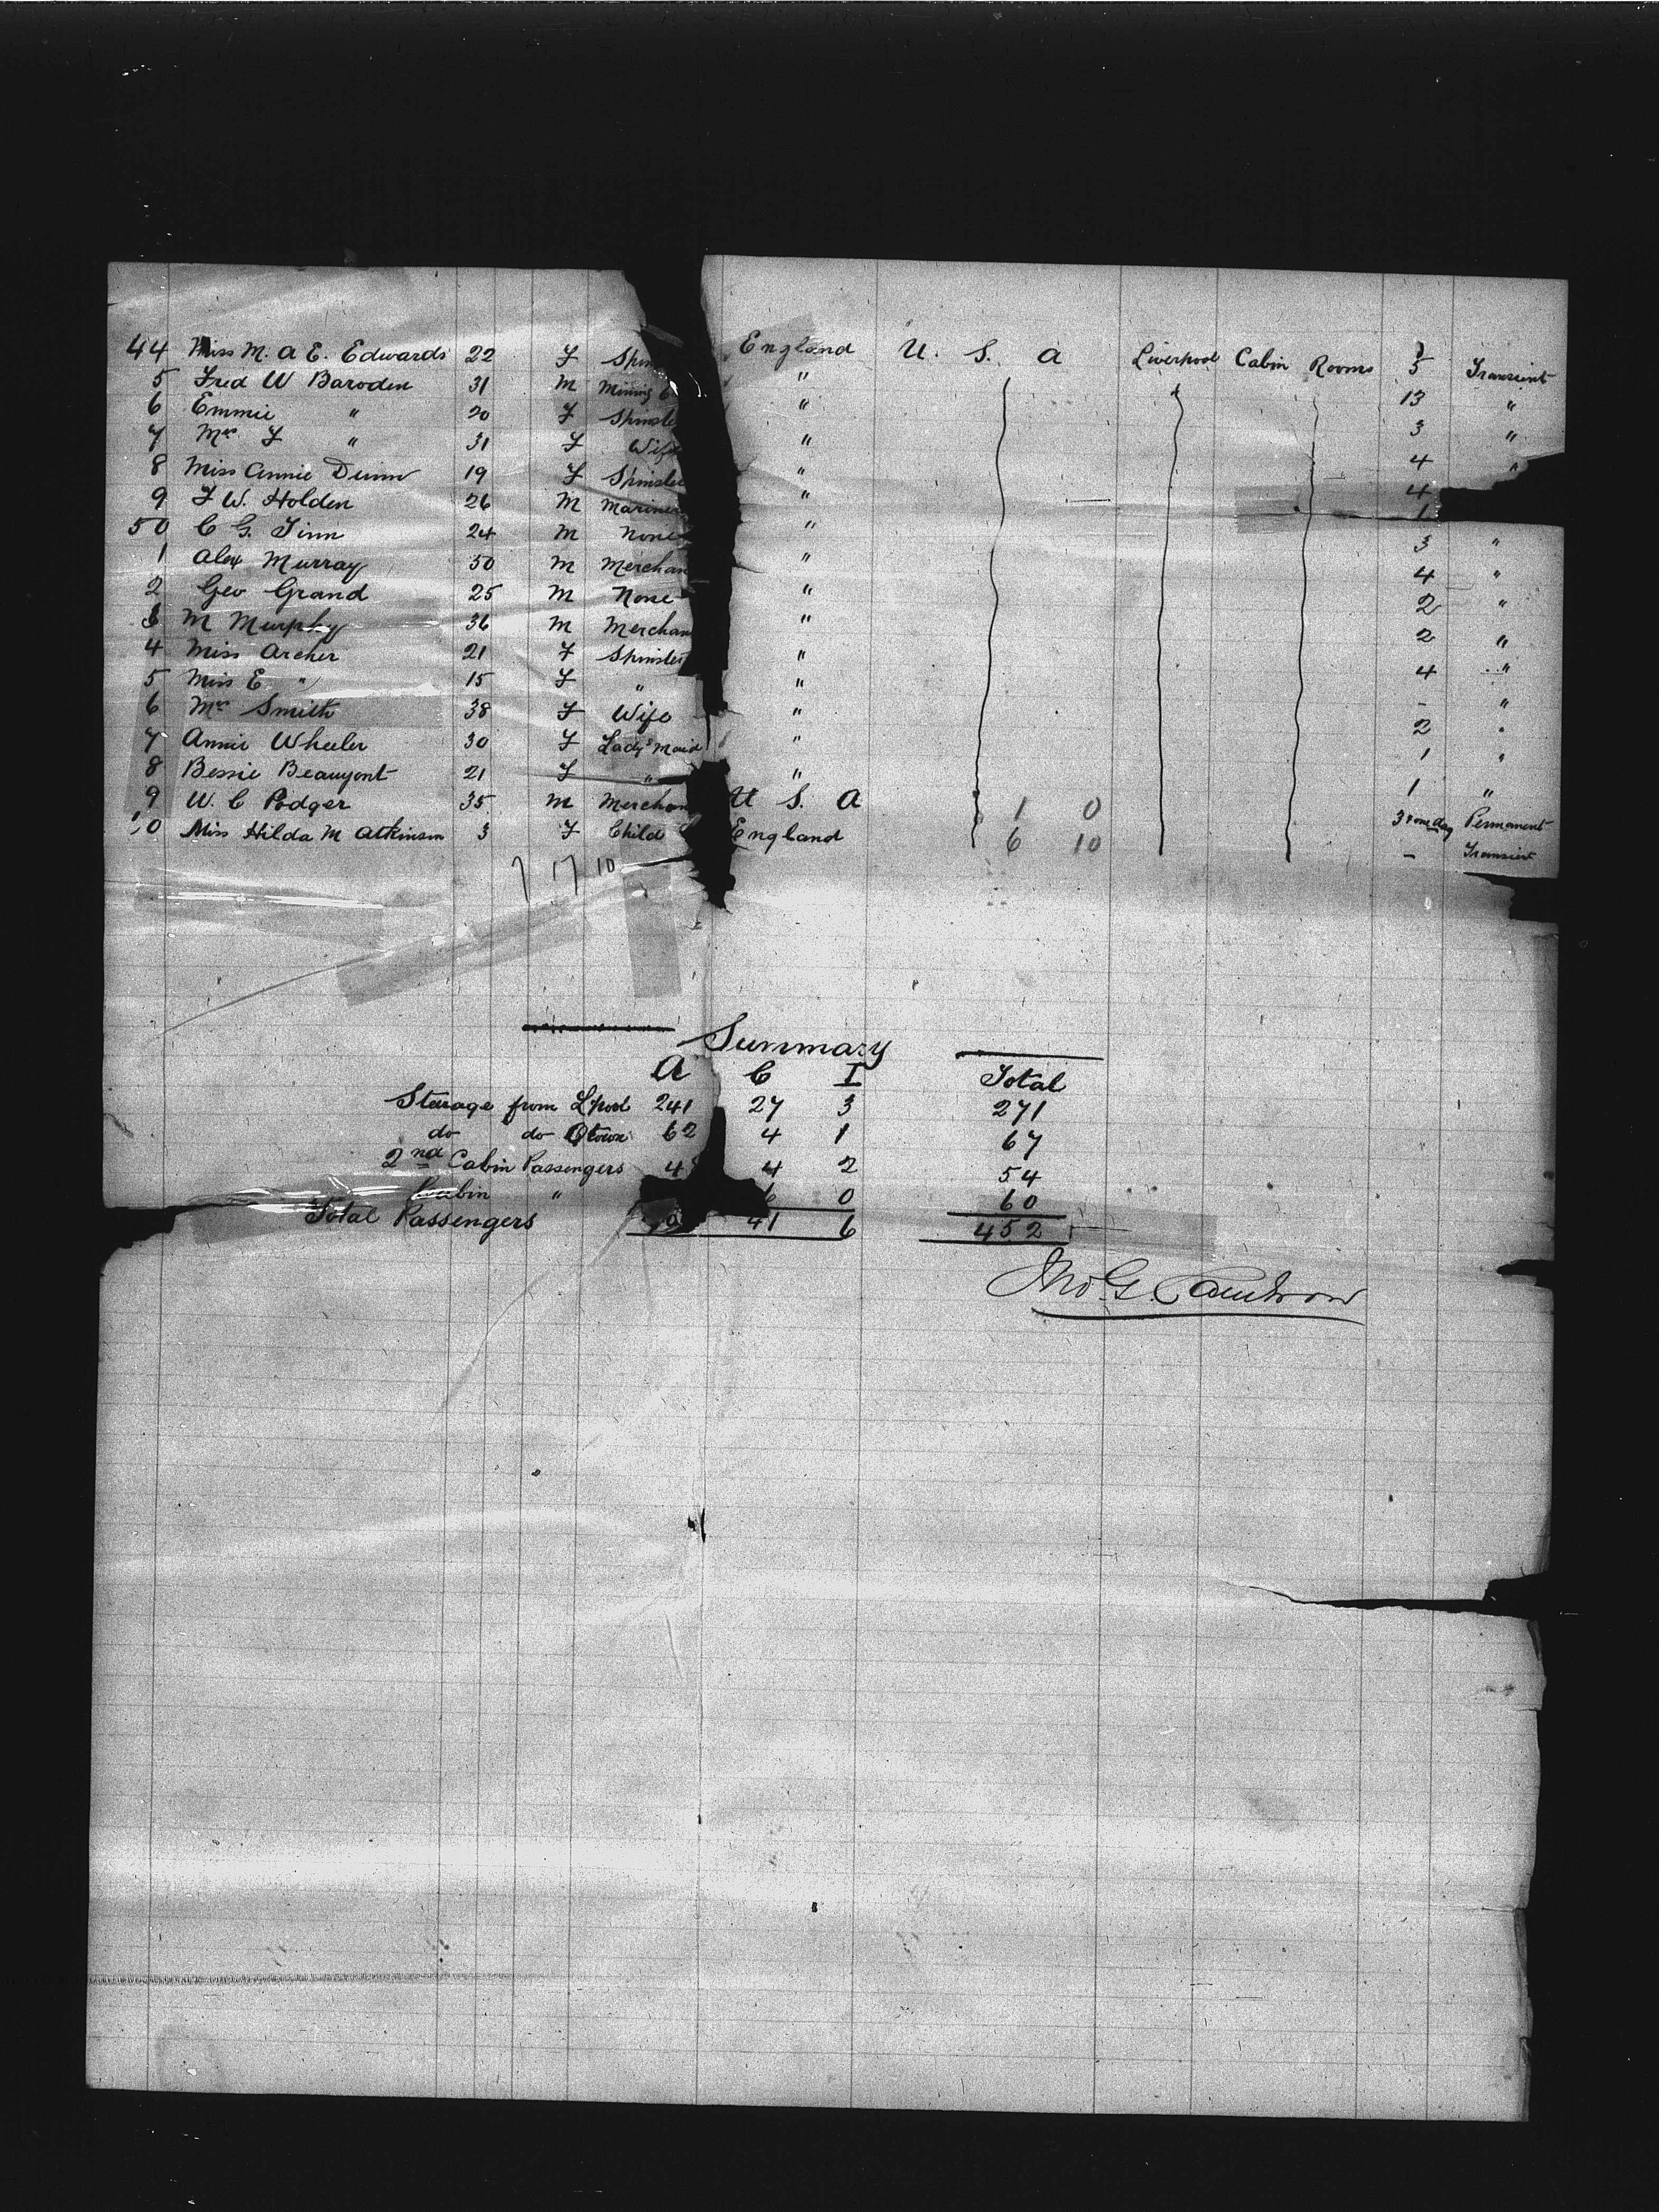 44 Miss M. A E. Edwards 22 F Spin England U. S. A Liverpool Cabin Rooms 5 Transient
5 Fred W Baroden 31 M Mining E " 13 "
6 Emmie " 20 F Spinste " 3 "
7 Mrs F " 31 F Wife " 4 "
8 Miss Annie Dunn 19 F Spinster " 4
9 F W. Holden 26 M Mariner " 1
50 C G. Finn 24 M None " 3 "
1 Alex Murray 50 M Merchan " 4 "
2 Geo Grand 25 M None " 2 "
3 M Murphy 36 M Merchan " 2 "
4 Miss Archer 21 F Spinster " 4 "
5 Miss E " 15 F " " - "
6 Mrs Smith 38 F Wife " 2 "
7 Annie Wheeler 30 F Lady's Maid " 1 "
8 Bessie Beaumont 21 F " " 1 "
9 W. C Podger 35 M Merchan U S. A 1 0 3 + one day Permanent
60 Miss Hilda M Atkinson 3 F Child England 6 10 - Transient
7 17 10
Summary
A C I Total
Sterage from L'pool 241 27 3 271
do do Qtown 62 4 1 67
2nd Cabin Passengers 48 4 2 54
Cabin " 6 0 60
Total Passengers 41 6 452
Jno. G. Cameron